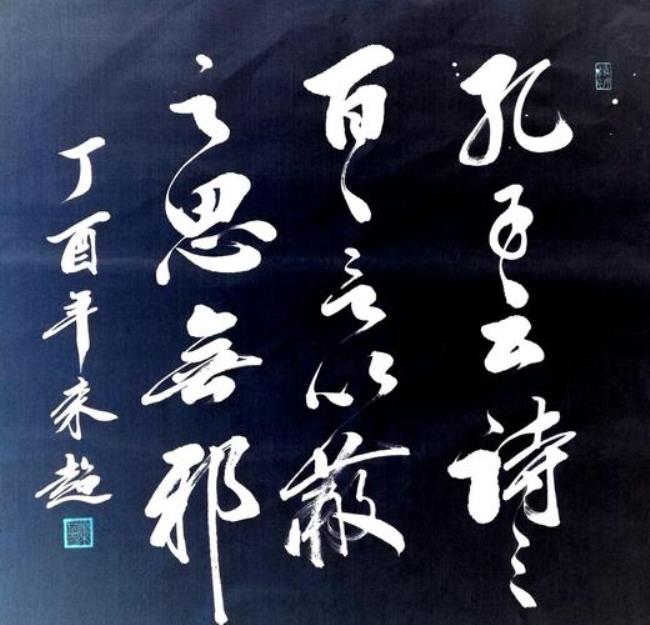 孔子云诗三
百一言以蔽
之思無邪
丁酉年来超